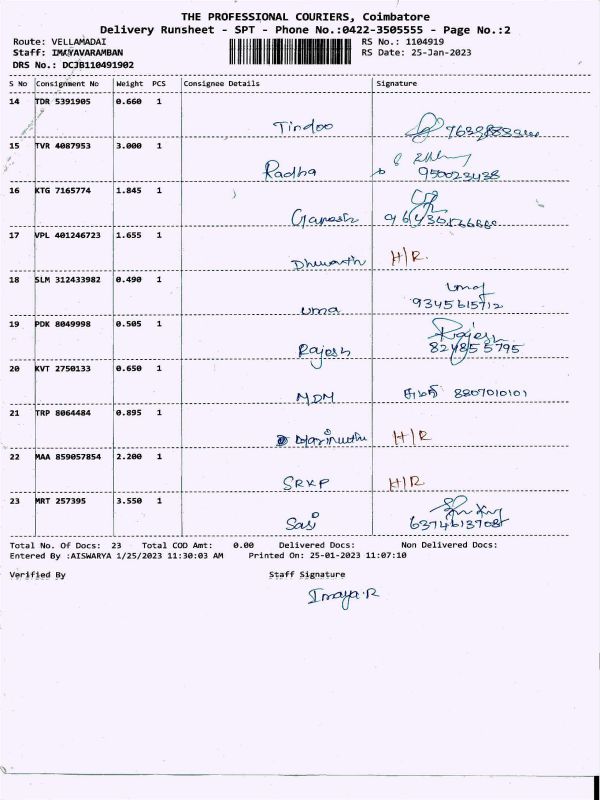 THE PROFESSIONAL COURIERS, Coimbatore
Delivery Runsheet - SPT - Phone No.:0422-3505555 - Page No.:2
Route: VELLAMADAI RS No.: 1104919
Staff: IMAYAVARAMBAN RS Date: 25-Jan-2023
DRS No.: DCJB110491902
S No Consignment No Weight PCS Consignee Details Signature
14 TDR 5391905 0.660 1
Tindoo
15 TVR 4087953 3.000 1
Radha 950023438
16 KTG 7165774 1.845 1
Ganesh
17 VPL 401246723 1.655 1
H/R.
18 SLM 312433982 0.490 1
uma
uma 9345615712
19 PDK 8049998 0.505 1
Rajesh
Rajesh 8248555795
20 KVT 2750133 0.650 1
MDM 8807010101
21 TRP 8064484 0.895 1
H/R
22 MAA 859057854 2.200 1
SRKP H/R
23 MRT 257395 3.550 1
Sasi 6374613708
Total No. Of Docs: 23 Total COD Amt: 0.00 Delivered Docs: Non Delivered Docs:
Entered By :AISWARYA 1/25/2023 11:30:03 AM Printed On: 25-01-2023 11:07:10
Verified By Staff Signature
Imaya.R